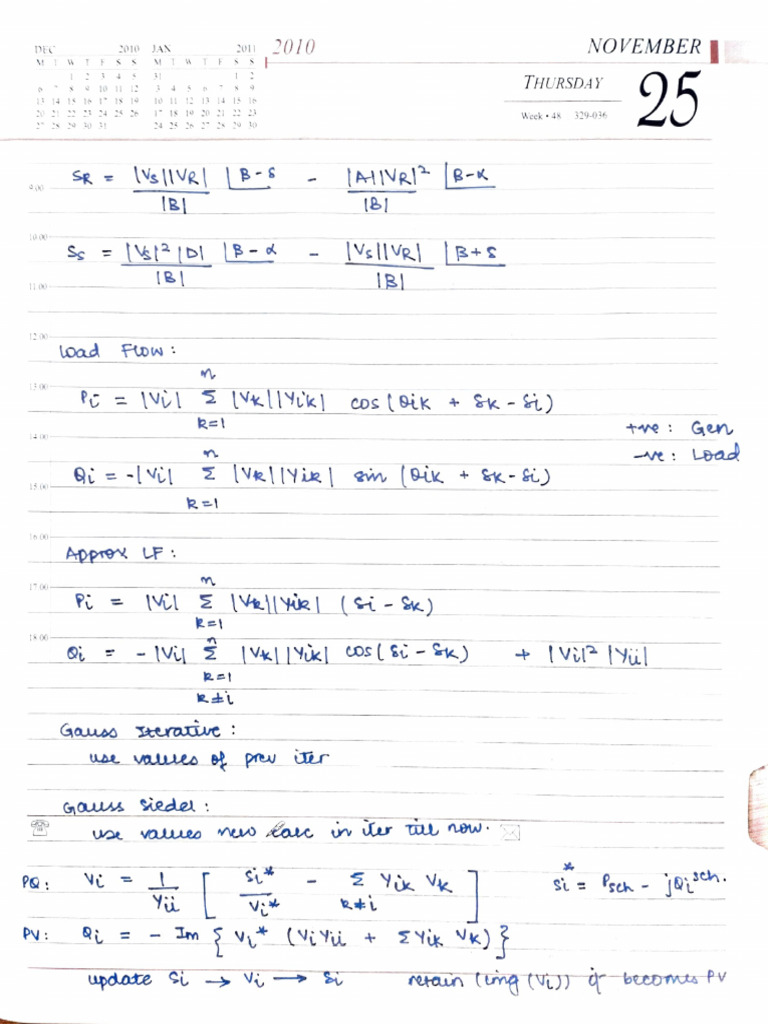 DEC 2010 JAN 2011 2010 NOVEMBER
M T W T F S S M T W T F S S
1 2 3 4 5 31 1 2
6 7 8 9 10 11 12 3 4 5 6 7 8 9
13 14 15 16 17 18 19 10 11 12 13 14 15 16
20 21 22 23 24 25 26 17 18 19 20 21 22 23
27 28 29 30 31 24 25 26 27 28 29 30
THURSDAY 25
Week • 48 329-036
S_R = |V_S||V_R| / |B| ∠β-δ - |A||V_R|² / |B| ∠β-α
9.00
10.00
S_S = |V_S|²|D| / |B| ∠β-α - |V_S||V_R| / |B| ∠β+δ
11.00
12.00
Load Flow :
13.00
P_i = |V_i| Σ_{k=1}^{n} |V_k||Y_ik| cos(θ_ik + δ_k - δ_i)
+ve : Gen
14.00
-ve : Load
Q_i = -|V_i| Σ_{k=1}^{n} |V_k||Y_ik| sin(θ_ik + δ_k - δ_i)
15.00
16.00
Approx LF :
17.00
P_i = |V_i| Σ_{k=1}^{n} |V_k||Y_ik| (δ_i - δ_k)
18.00
Q_i = -|V_i| Σ_{k=1, k≠i}^{n} |V_k||Y_ik| cos(δ_i - δ_k) + |V_i|² |Y_ii|
Gauss Iterative :
use values of prev iter
Gauss Siedel :
use values new calc in iter till now.
PQ: V_i = 1/Y_ii [ S_i*/V_i* - Σ_{k≠i} Y_ik V_k ] S_i* = P_sch - jQ_i^sch.
PV: Q_i = - Im { V_i* (V_i Y_ii + ΣY_ik V_k) }
update S_i → V_i → S_i retain (img (V_i)) if becomes PV